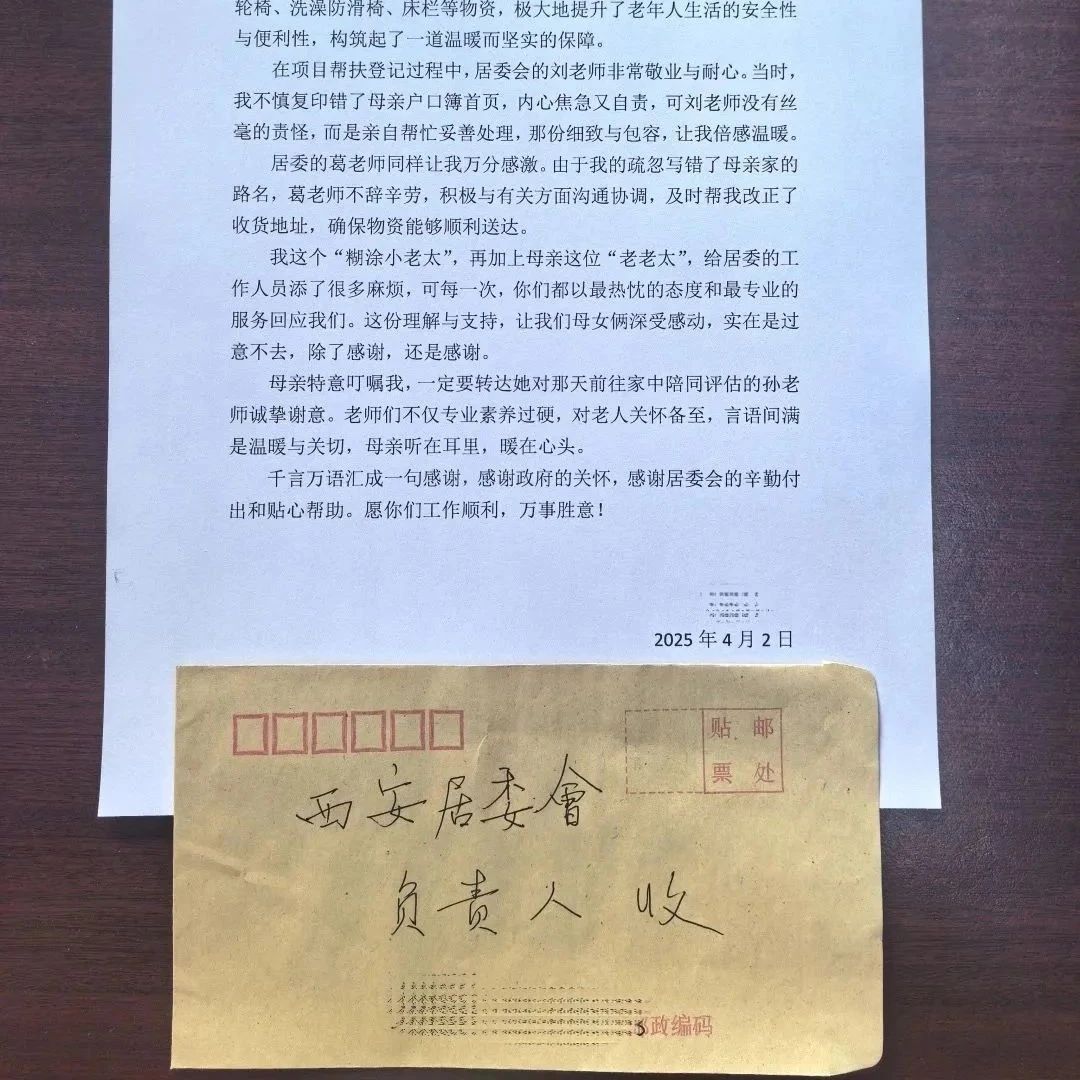 轮椅、洗澡防滑椅、床栏等物资，极大地提升了老年人生活的安全性
与便利性，构筑起了一道温暖而坚实的保障。
在项目帮扶登记过程中，居委会的刘老师非常敬业与耐心。当时，
我不慎复印错了母亲户口簿首页，内心焦急又自责，可刘老师没有丝
毫的责怪，而是亲自帮忙妥善处理，那份细致与包容，让我倍感温暖。
居委的葛老师同样让我万分感激。由于我的疏忽写错了母亲家的
路名，葛老师不辞辛劳，积极与有关方面沟通协调，及时帮我改正了
收货地址，确保物资能够顺利送达。
我这个“糊涂小老太”，再加上母亲这位“老老太”，给居委的工
作人员添了很多麻烦，可每一次，你们都以最热忱的态度和最专业的
服务回应我们。这份理解与支持，让我们母女俩深受感动，实在是过
意不去，除了感谢，还是感谢。
母亲特意叮嘱我，一定要转达她对那天前往家中陪同评估的孙老
师诚挚谢意。老师们不仅专业素养过硬，对老人关怀备至，言语间满
是温暖与关切，母亲听在耳里，暖在心头。
千言万语汇成一句感谢，感谢政府的关怀，感谢居委会的辛勤付
出和贴心帮助。愿你们工作顺利，万事胜意！
2025 年 4 月 2 日
贴 邮
票 处
西安居委會
负责人 收
政编码